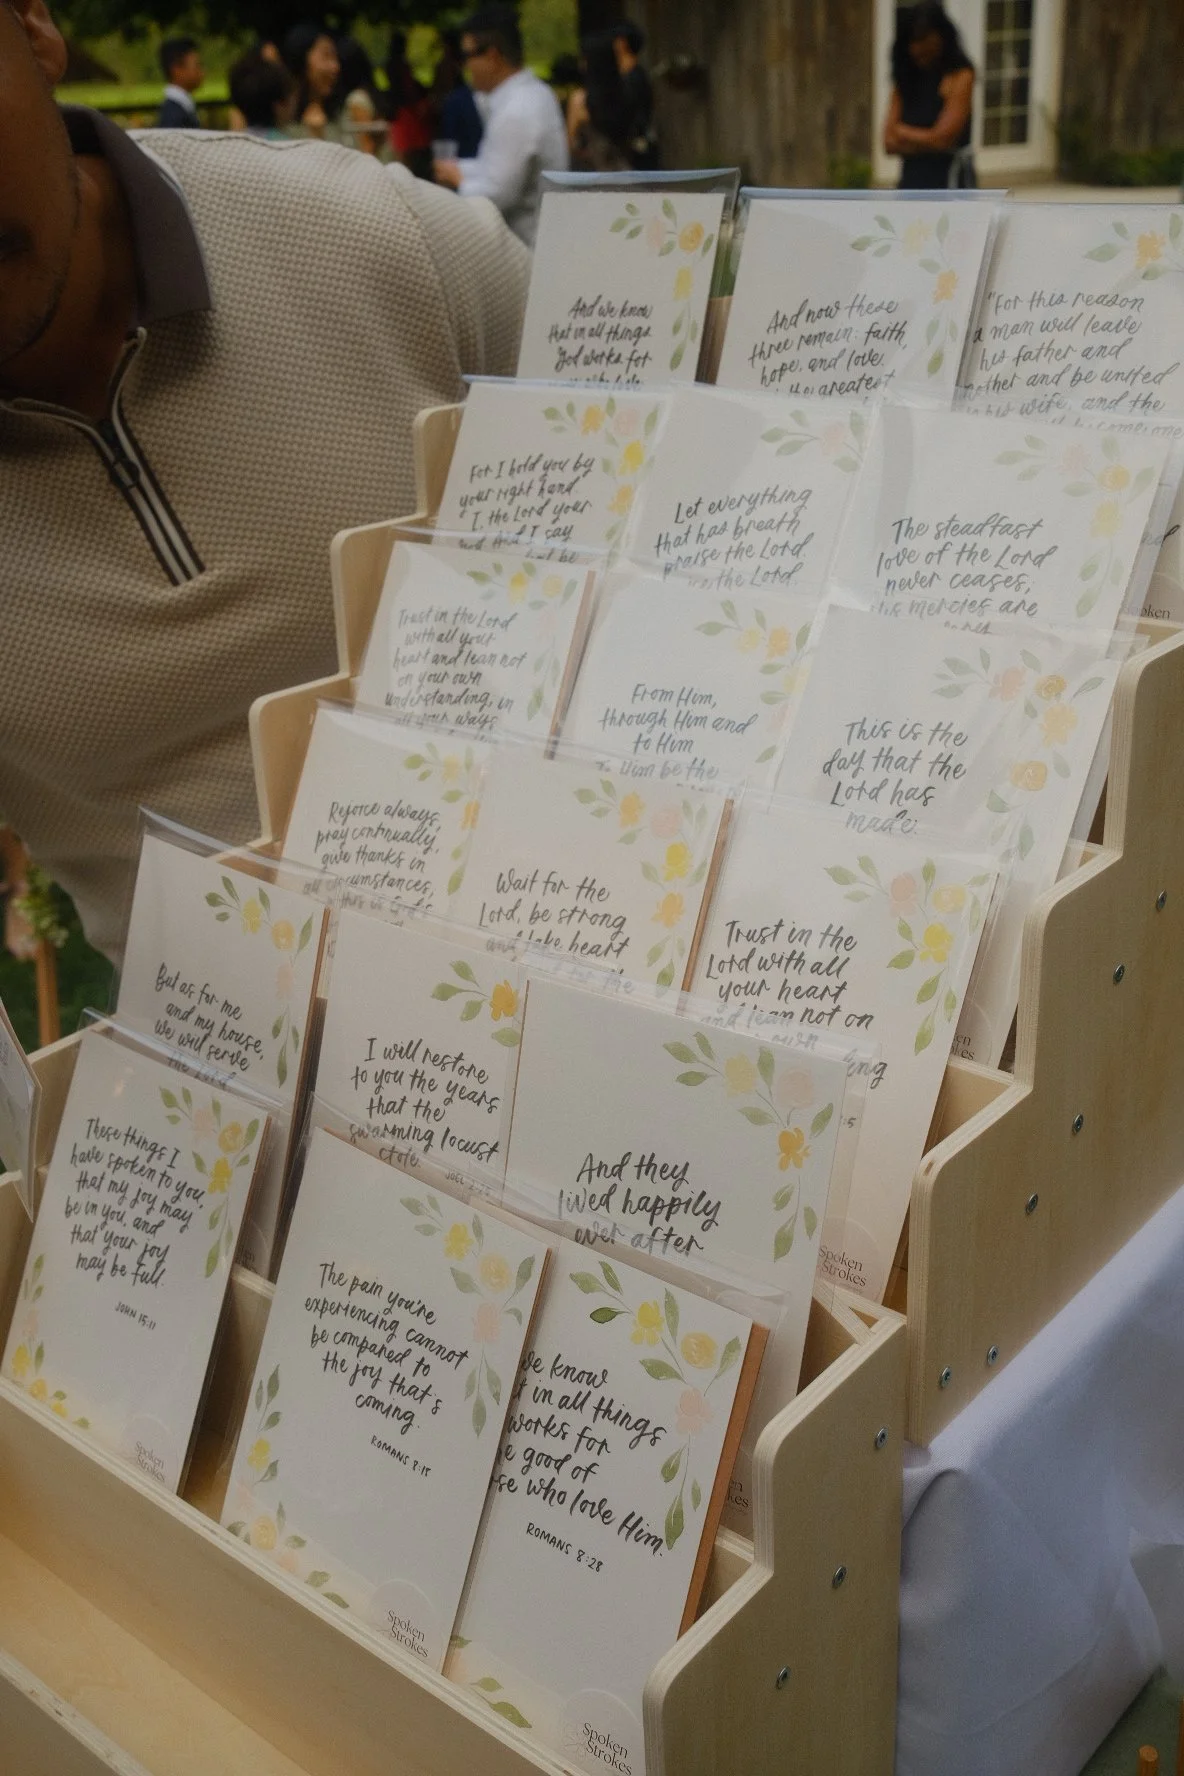 And we know
that in all things
God works for
And now these
three remain: faith,
hope, and love.
the greatest
"For this reason
a man will leave
his father and
mother and be united
to his wife, and the
become one
For I hold you by
your right hand
I, the Lord your
God. And I say
not be
Let everything
that has breath
praise the Lord.
the Lord.
The steadfast
love of the Lord
never ceases,
his mercies are
Spoken
Trust in the Lord
with all your
heart and lean not
on your own
understanding, in
all your ways
From Him,
through Him and
to Him
To Him be the
This is the
day that the
Lord has
made.
Rejoice always,
pray continually,
give thanks in
all circumstances,
this is God's
Wait for the
Lord, be strong
and take heart
for the
Trust in the
Lord with all
your heart
and lean not on
own
:5
But as for me
and my house,
we will serve
the Lord
I will restore
to you the years
that the
swarming locust
stole.
JOEL 2:25
And they
lived happily
ever after
Spoken
Strokes
These things I
have spoken to you,
that my joy may
be in you, and
that your joy
may be full.
JOHN 15:11
Spoken
Strokes
The pain you're
experiencing cannot
be compared to
the joy that's
coming.
ROMANS 8:18
Spoken
Strokes
we know
in all things
works for
good of
who love Him.
ROMANS 8:28
Spoken
Strokes